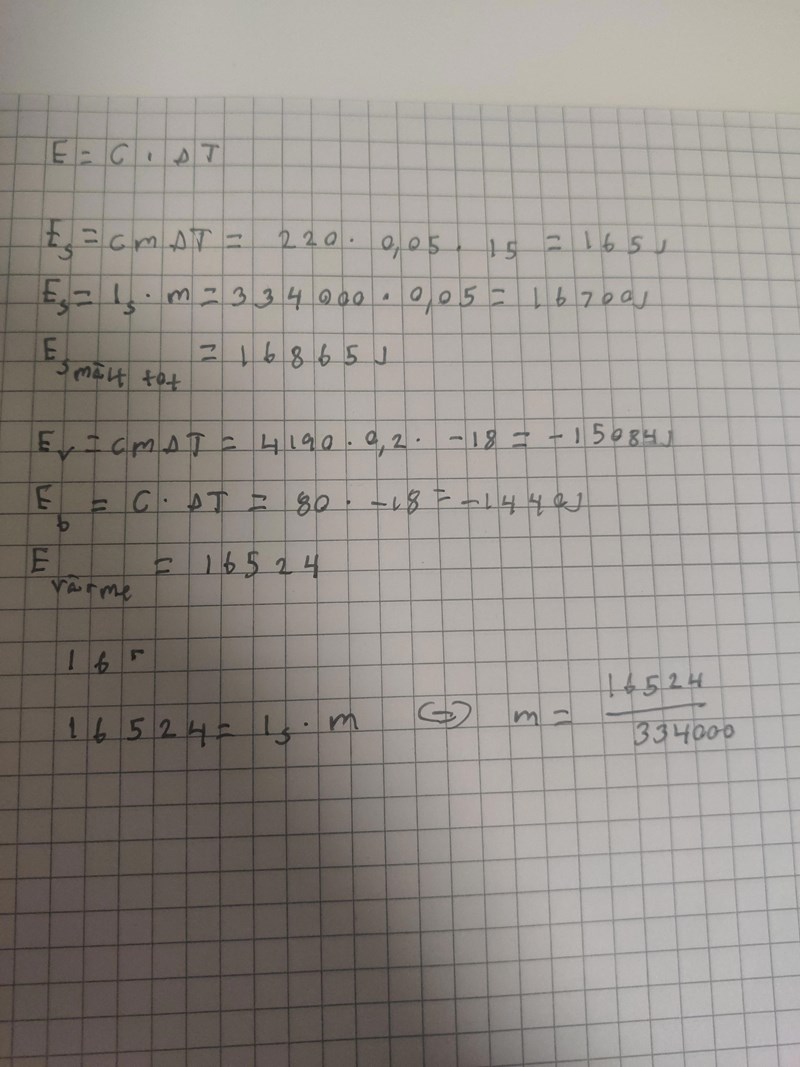 E = C · ΔT
Es = cmΔT = 220 · 0,05 · 15 = 165J
Es = ls · m = 334000 · 0,05 = 16700J
Es mält tot = 16865J
Ev = cmΔT = 4190 · 0,2 · -18 = -15084J
Eb = C · ΔT = 80 · -18 = -1440J
Evärme = 16524
165
16524 = ls · m ⇔ m = 16524/334000